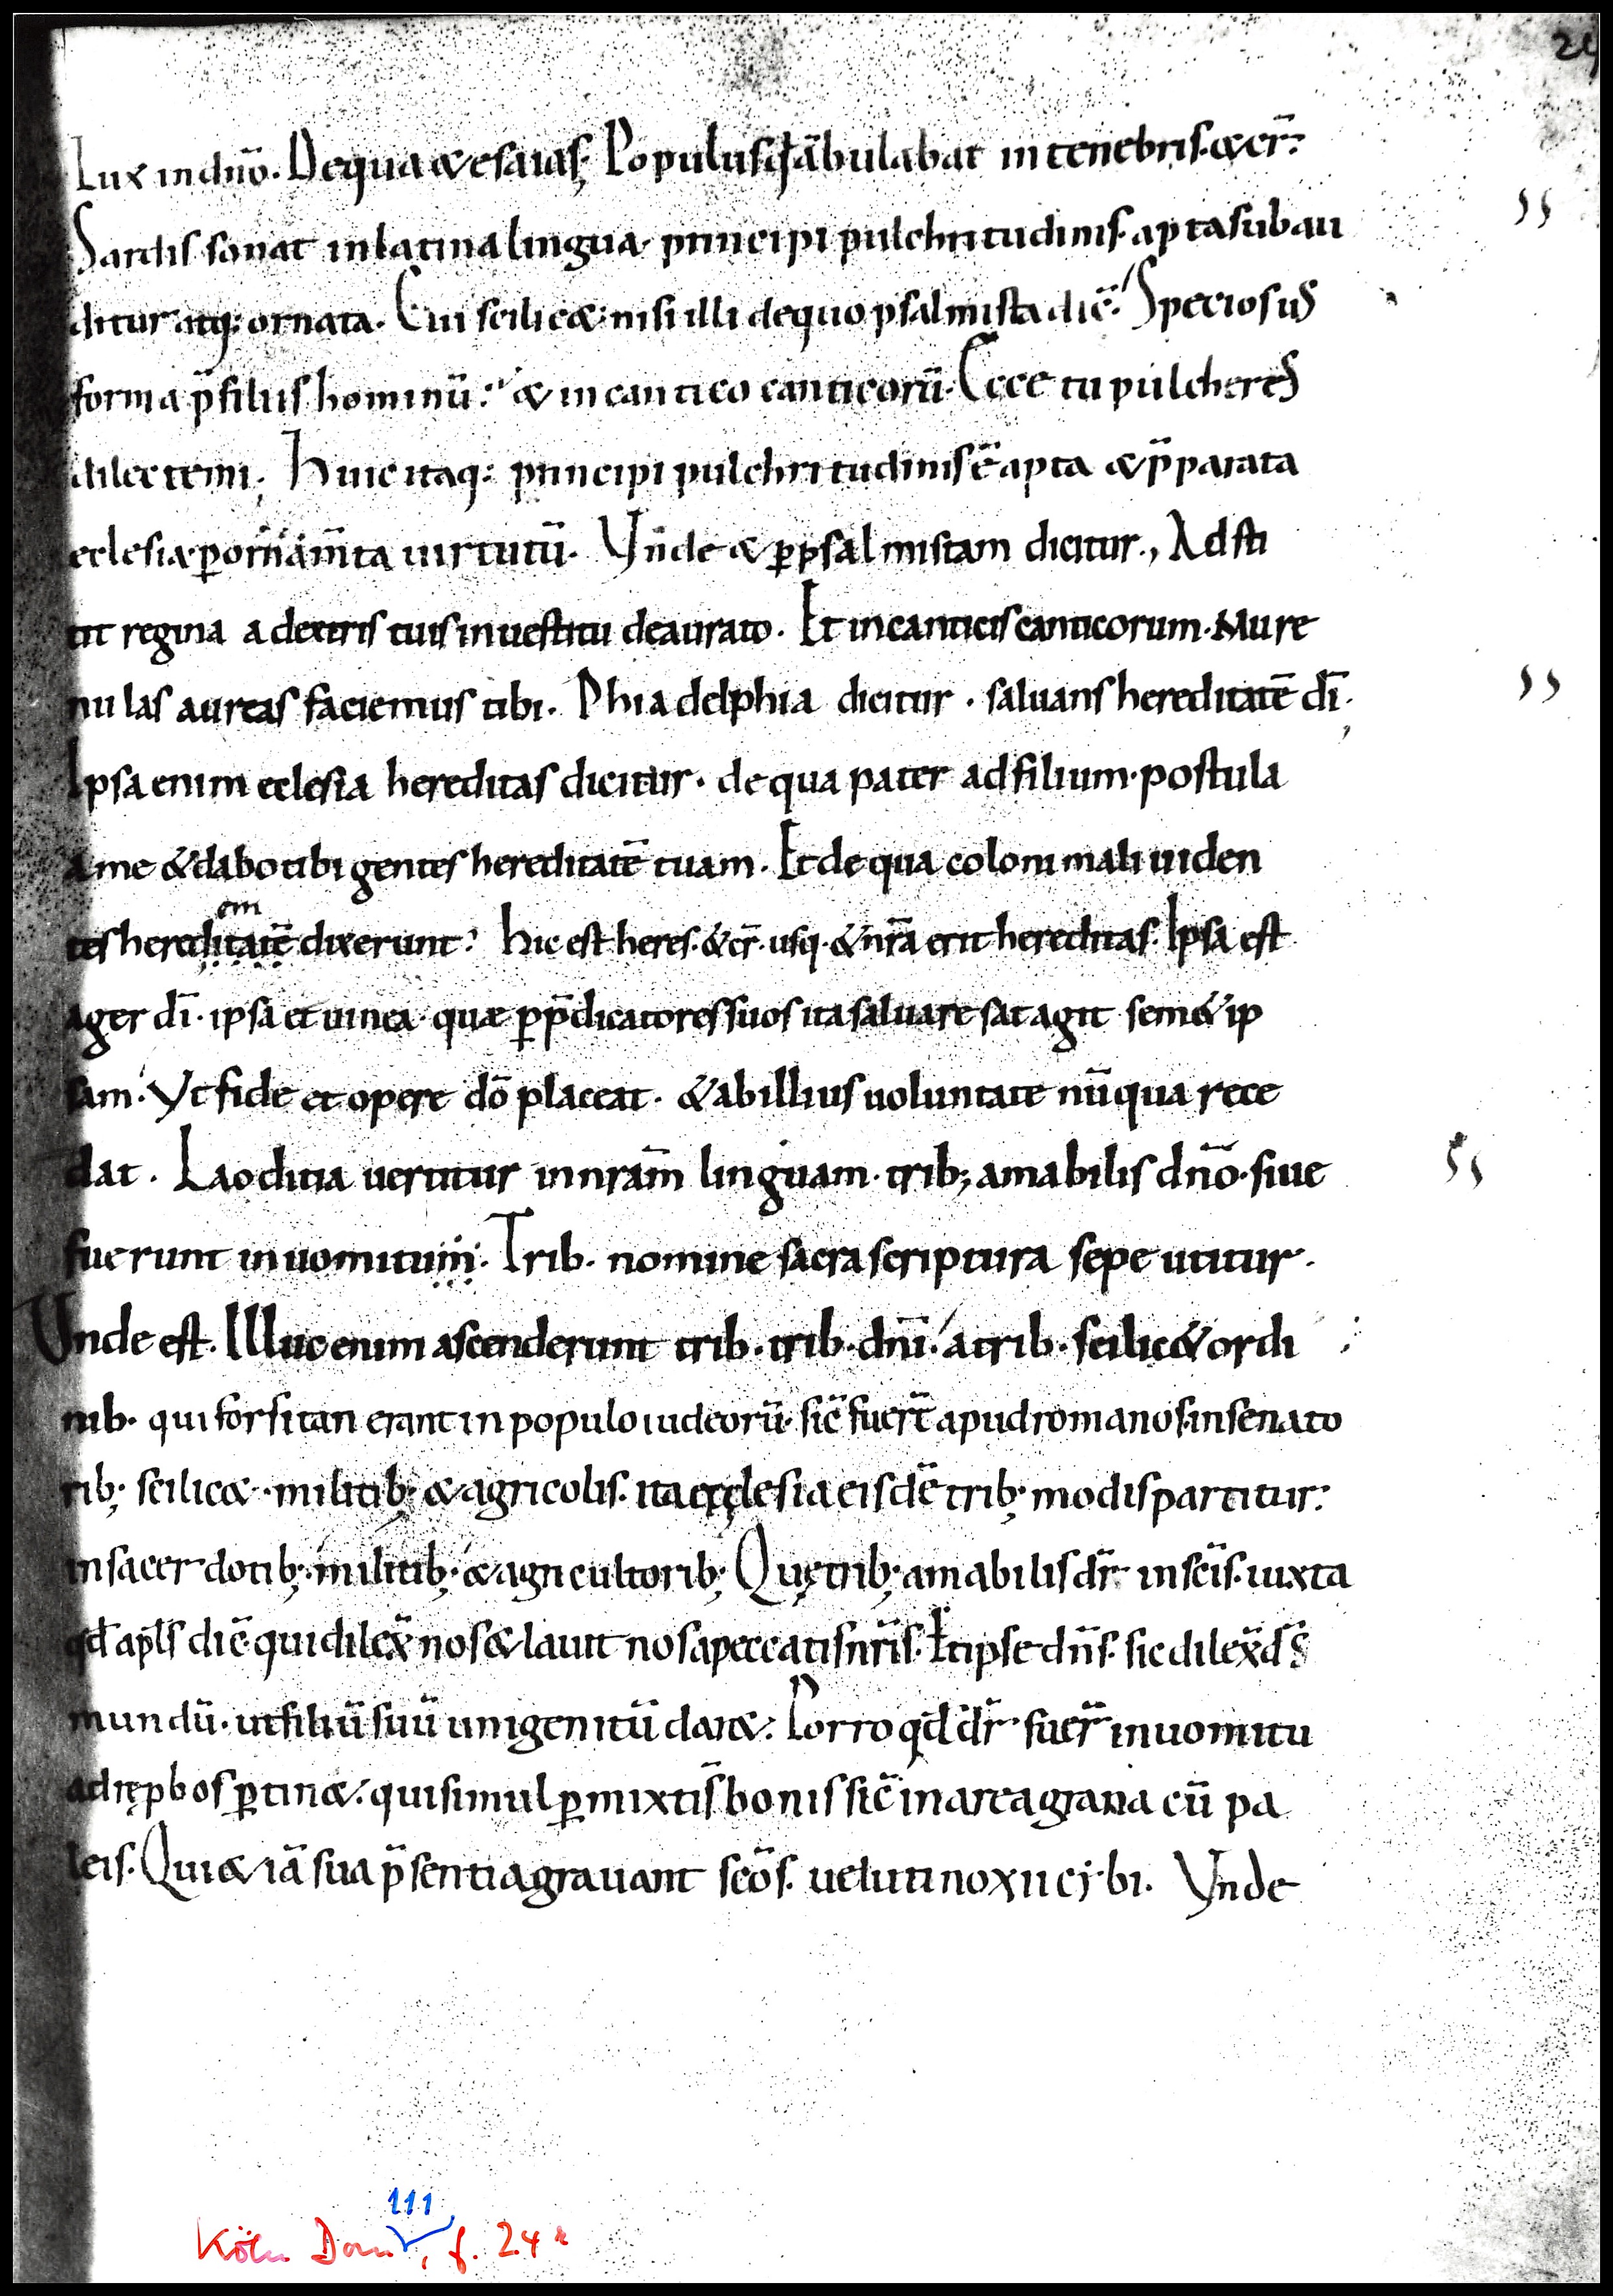 24
Lux in dño. De qua & esaias; Populus q̃ ãbulabat in tenebris. & cr̃:
Sardis sonat in latina lingua principi pulchritudinis. apta subau
ditur atq; ornata. Cui scilic&; nisi illi de quo psalmista dic̃. Speciosus
forma p̃ filiis hominũ: & in cantico canticorũ. Ecce tu pulcher es
dilecte mi; Huic itaq; principi pulchritudinis ẽ apta & p̃parata
eclesia ꝑ ornam̃ta uirtutũ. Vnde & ꝑ psalmistam dicitur., Adsti
tit regina a dextris tuis in uestitu deaurato. Et in canticis canticorum. Mure
nulas aureas faciemus tibi. Phiadelphia dicitur. saluans hereditatẽ dĩ.
Ipsa enim eclesia hereditas dicitur. de qua pater ad filium. postula
a me & dabo tibi gentes hereditatẽ tuam. Et de qua coloni mali uiden
em
tes hereditatẽ dixerunt? hic est heres. & cr̃. usq. & nr̃a erit hereditas. Ipsa est
ager dĩ. ipsa et uinea. quæ ꝑ p̃dicatores suos ita saluare satagit sem& ip
sam. Vt fide et opere dõ placeat. & ab illius uoluntate nũqua rece
dat. Laoditia uertitur in nr̃am linguam. trib; amabilis dño. siue
fuerunt in uomitum. Trib. nomine sacra scriptura sepe utitur.
Vnde est. Illuc enim ascenderunt trib. trib. dñi. a trib. scilic& ordi
nib. qui forsitan erant in populo iudeorũ. sic̃ fuer̃ apud romanos. in senato
rib; scilic&. militib; & agricolis. ita ęcclesia eisdẽ trib; modis partitur:
in sacerdotib; militib; & agricultorib; Quę trib; amabilis dr̃ in sc̃is. iuxta
qđ apl̃s dic̃. qui dilex̃ nos & lauit nos a peccatis nr̃is. Et ipse dñs. sic dilex̃ d̃s
mundũ. ut filiũ suũ unigenitũ dar&: Porro qđ dr̃ fuer̃ in uomitu
ad rępbos ꝑtin&. qui simul ꝑmixti s̃ bonis sic̃ in area grana cũ pa
leis. Qui & iã sua p̃sentia grauant sc̃os. uelut inoxii cibi. Vnde
Köln Dom 111, f. 24r